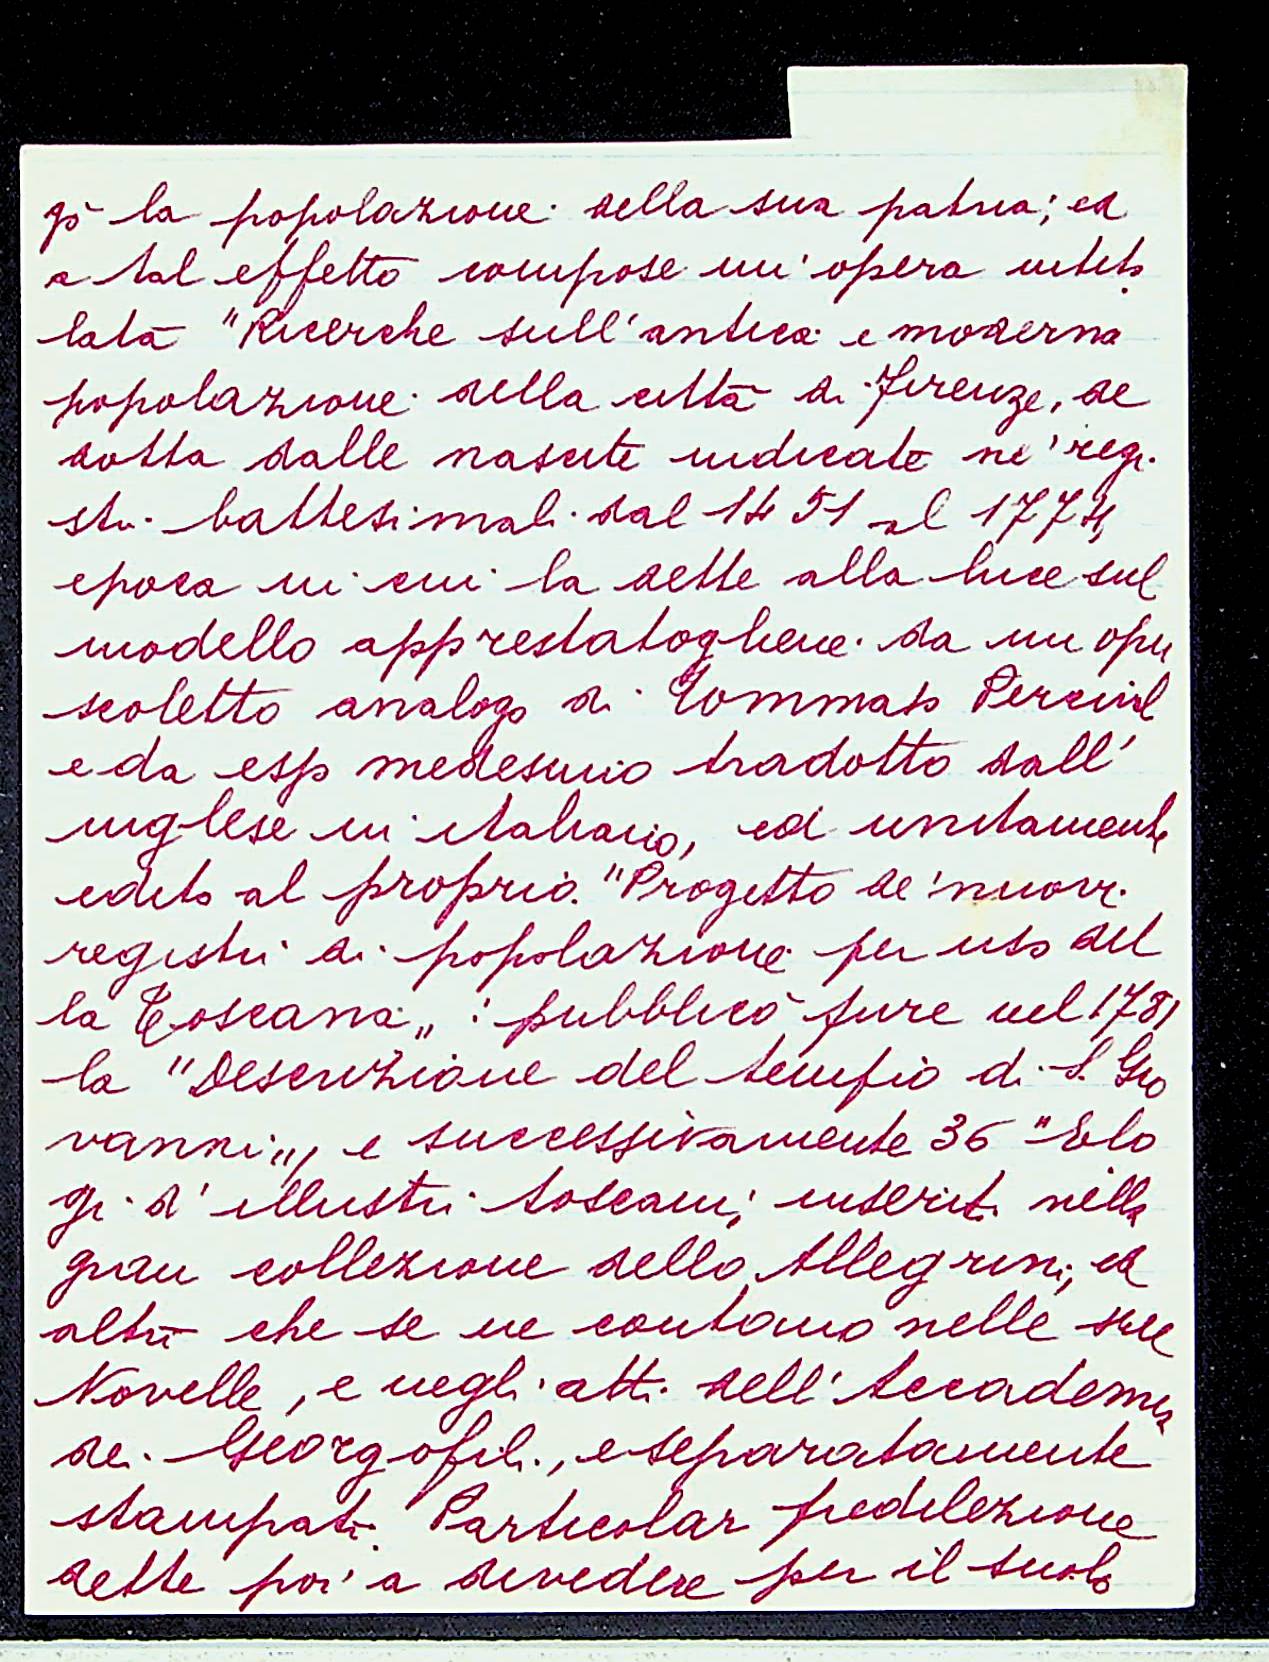 gò la popolazione della sua patria; ed
a tal effetto compose un'opera intito
lata "Ricerche sull'antica e moderna
popolazione della città di Firenze, de
dotta dalle nascite indicate ne' regi
stri battesimali dal 1451 al 1774,
epoca in cui la dette alla luce sul
modello apprestatogliene da un opu
scoletto analogo di Tommaso Percival
e da esso medesimo tradotto dall'
inglese in italiano, ed unitamente
edito al proprio "Progetto de' nuovi
registri di popolazione per uso del
la Toscana„ : pubblicò pure nel 1781
la "Descrizione del tempio di S. Gio
vanni„, e successivamente 36 "Elo
gi d'illustri toscani, inseriti nella
gran collezione dello Allegrini, ed
altri che se ne contano nelle sue
Novelle, e negli atti dell'Accademia
dei Georgofili, e separatamente
stampati. Particolar predilezione
dette poi a divedere per il suolo